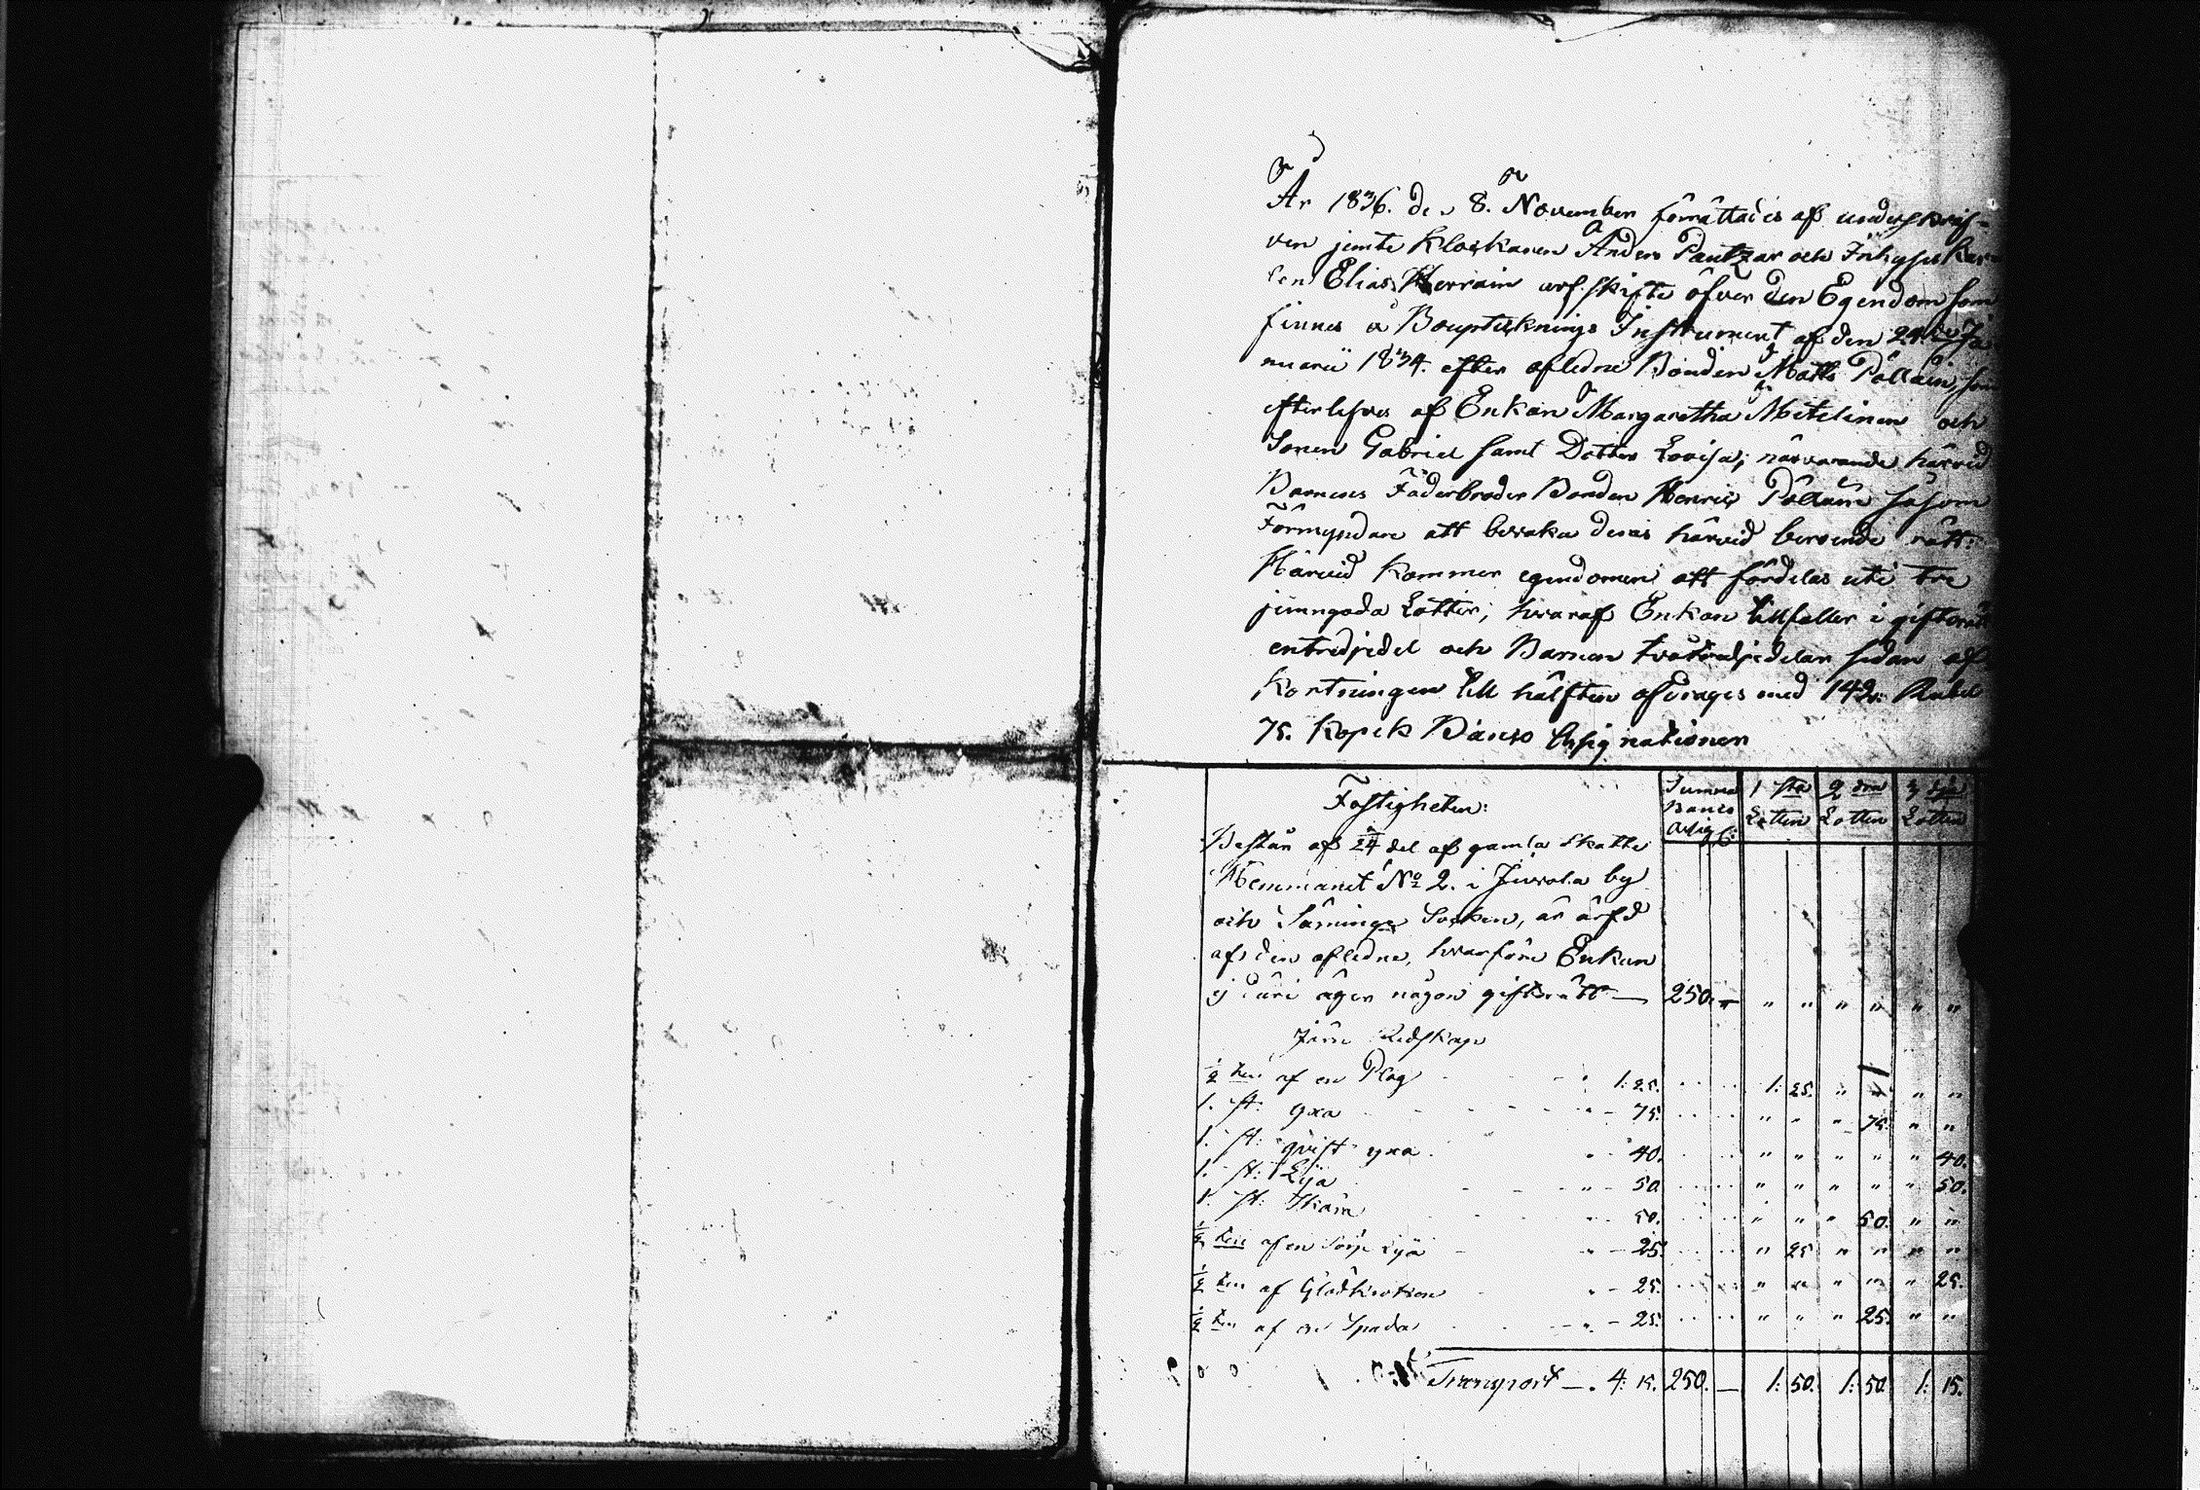 År 1836. den 8. November förrättades af underskrif-
ven jemte Klockaren Anders Pantzar och Inhyses Kar-
len Elias Herrain arfskifte öfver den Egendom som
finnes å Bouptecknings Instrument af den 24 Ja
nuarii 1834. efter aflidne Bonden Matts Pölläin, som
efterlefves af Enkan Margaretha Mitelinen och
Sonen Gabriel samt Dotter Lovisa; närvarande härvid
Barnens Faderbroder Bonden Henric Pölläin såsom
Förmyndare att bevaka deras härvid beroende rätt:
Härvid kommer egendomen att fördelas uti tre
jemngoda Lotter; hvaraf Enkan tillfaller i giftorätt
entredjedel och Barnen tvåtredjedelar sedan af
kortningen till hälften afdrages med 142. Rubel
75. Kopek Banco Assignationer
Fastigheten: Summa Banco Assig: 1 sta Lotten 2 dra Lotten 3 dje Lotten
Består af 1/24 del af gamla Skatte
Hemmanet No 2. i Juvola by
och Säminge Socken, är ärfd
af den aflidne, hvarföre Enkan
ej däri äger någon giftorätt — 250. — " " " " " "
Järn Redskap
1/2 ten af en Plog 1: 25. 1: 25. " " " "
1. st: yxa 75. " " " 75. " "
1. st: qvist yxa 40. " " " " " 40.
1. st: Lija 50. " " " " " 50.
1. st: Skära 50. " " " 50. " "
1/2 ten af en Lija 25. " 25. " " " "
1/2 ten af 25. " " " " " 25.
1/2 ten af en Spada 25. " " " 25. " "
Transport — 4: 15. 250. — 1: 50. 1: 50 1: 15.